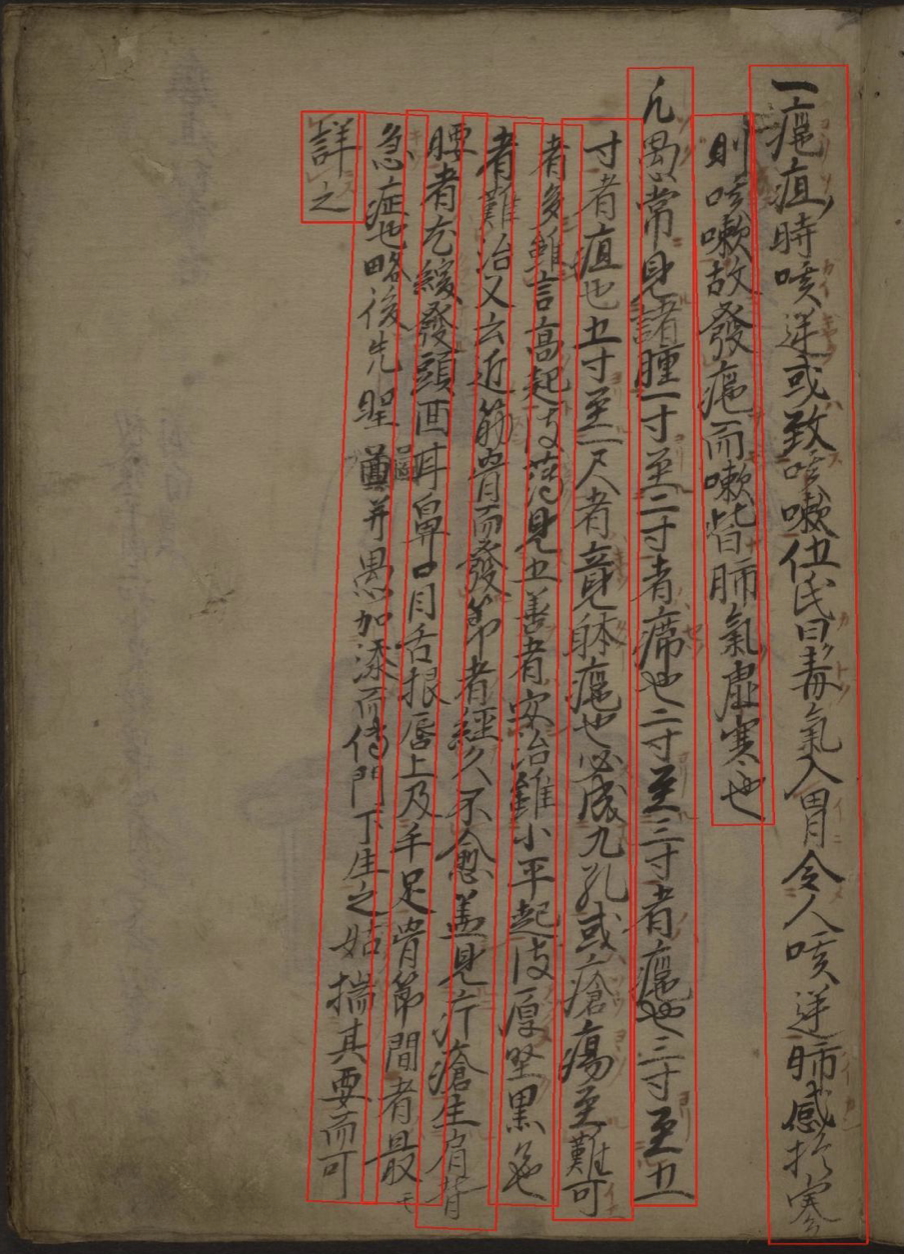 一癰疽時咳逆或致咳嗽伍氏曰毒氣入胃令人咳逆肺感於寒
則咳嗽故發癰而嗽皆肺氣虛寒也
凡愚常見諸腫一寸至二寸者癤也二寸至三寸者癰也三寸至五
寸者疽也五寸至一尺者竟躰癰也必成九孔或瘡瘍至難可
者多雖言高起皮薄見五善者安治雖小平起皮厚堅黒色
者難治又云近筋骨而發節者經久不愈蓋見疔瘡生肩背
腰者乞緩發頭面耳鼻口目舌根唇上及手足骨節間者最
急症也略後先聖并愚加添而傳門下生之姑揣其要而可
詳之